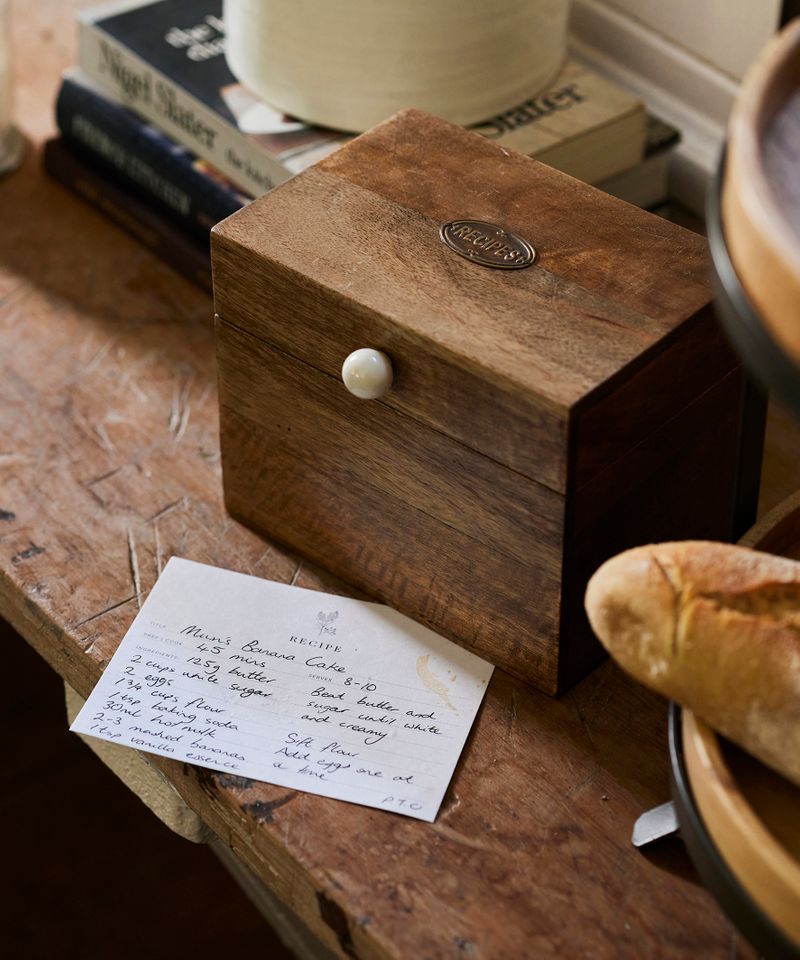 the k
Nigel Slater
the kitch
Slater
RECIPES
RECIPE
TITLE Mum's Banana Cake
PREP | COOK 45 mins
SERVES 8-10
INGREDIENTS 125g butter
2 cups white sugar
2 eggs
1 3/4 cups flour
1 tsp baking soda
30ml hot milk
2-3 mashed bananas
1 tsp vanilla essence
Beat butter and
sugar until white
and creamy
Sift flour
Add eggs one at
a time
P.T.O